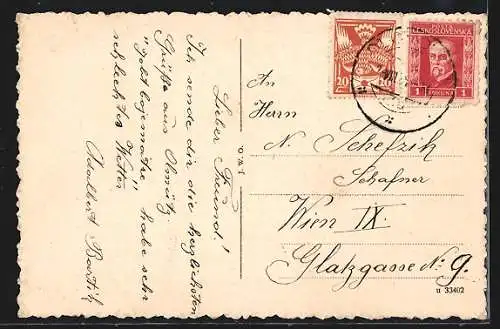 Lieber Freund!
Ich sende dir die herzlichsten
Grüße aus Olmütz
habe sehr
schlechtes Wetter
Adalbert
J. W. O.
20
ČESKOSLOVENSKÁ
1 KORUNA 1
An
Herrn
N. Schefzik
Schafner
Wien IX.
Glatzgasse No 9.
u 33402